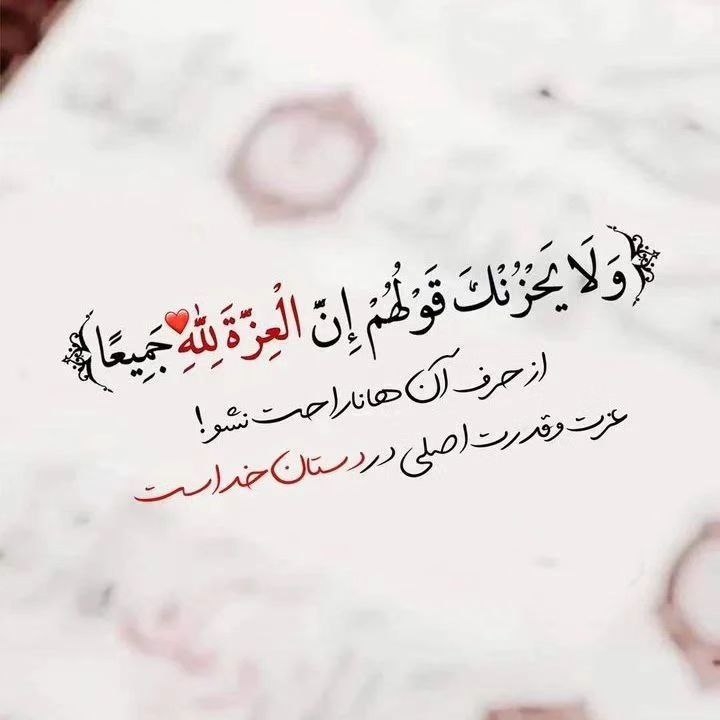 ﴿وَلَا يَحْزُنْكَ قَوْلُهُمْ إِنَّ الْعِزَّةَ لِلَّهِ❤️ جَمِيعًا﴾
از حرف آن ها ناراحت نشو!
عزت و قدرت اصلی در دستان خداست